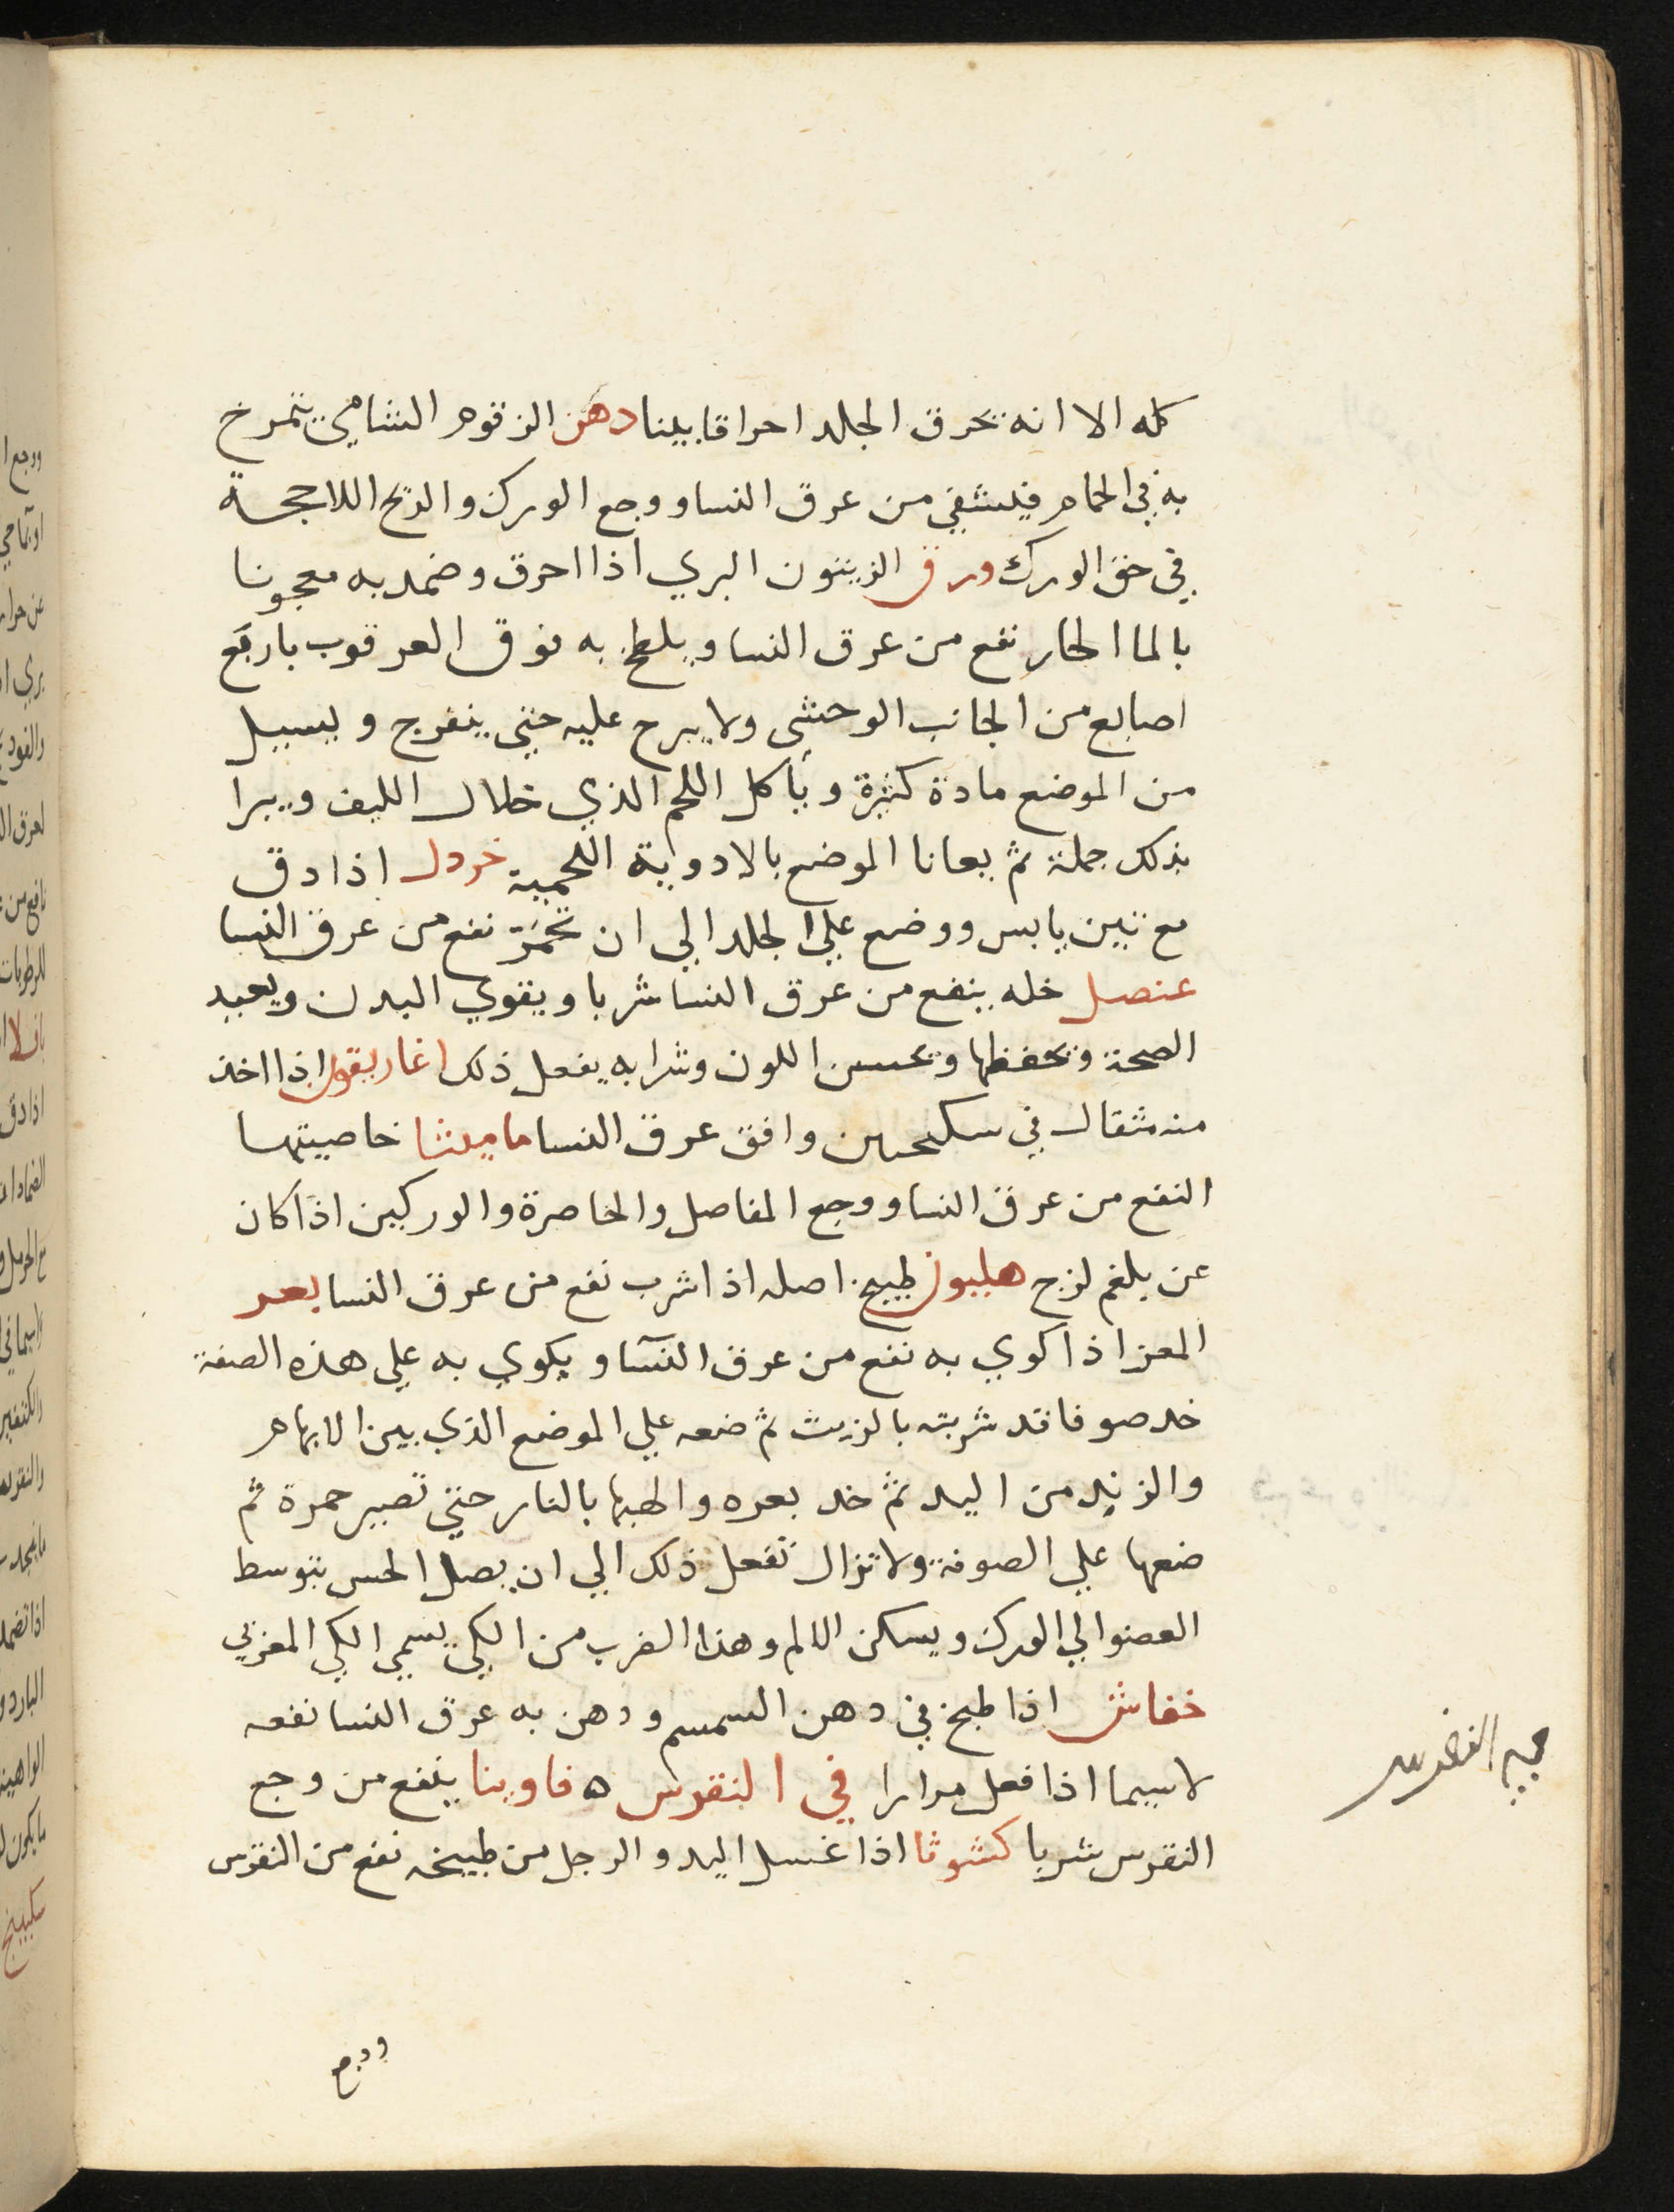 كله الا انه يحرق الجلد احراقا بينا دهن الزقوم الشامي يتمرخ
به في الحمام فيشفي من عرق النسا ووجع الورك والريح اللاحجة
في حق الورك ورق الزيتون البري اذا احرق وضمد به معجونا
بالما الحار نفع من عرق النسا ويلطخ به فوق العرقوب باربع
اصابع من الجانب الوحشي ولا يبرح عليه حتي ينفرج ويسيل
من الموضع مادة كثيرة وياكل اللحم الذي خلال الليف ويبرا
بذلك جملة ثم يعانا الموضع بالادوية اللحمية خردل اذا دق
مع تين يابس ووضع علي الجلد الي ان تحمر نفع من عرق النسا
عنصل خله ينفع من عرق النسا شربا ويقوي البدن ويعيد
الصحة ويحفظها ويحسن اللون وشرابه يفعل ذلك اغاريقون اذا اخذ
منه مثقال في سكنجبين وافق عرق النسا ماميثا خاصيتها
النفع من عرق النسا ووجع المفاصل والخاصرة والوركين اذا كان
عن بلغم لزج هليون طبيخ اصله اذا شرب نفع من عرق النسا بعر
المعز اذا كوي به نفع من عرق النسآ ويكوي به علي هذه الصفة
خد صوفا قد شربته بالزيت ثم ضعه علي الموضع الذي بين الابهام
والزند من اليد ثم خد بعره والهبها بالنار حتي تصير حمرة ثم
ضعها علي الصوفة ولا تزال تفعل ذلك الي ان يصل الحس بتوسط
العضو الي الورك ويسكن الالم وهذا الضرب من الكي يسمي الكي المغربي
خفاش اذا طبخ في دهن السمسم ودهن به عرق النسا نفعه
لا سيما اذا فعل مرارا في النقرس ه فاوينا ينفع من وجع
النقرس شربا كشوثا اذا غسل اليد والرجل من طبيخه نفع من النقرس
ووجع